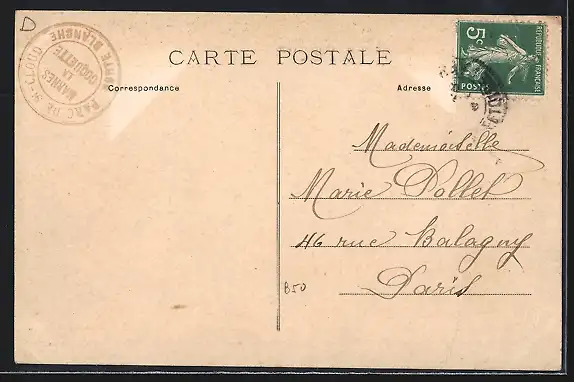 D
PARC DE St-CLOUD
PORTE BLANCHE
MARNES
LA
COQUETTE
CARTE POSTALE
REPUBLIQUE FRANÇAISE
5c
POSTES
Correspondance
Adresse
Mademoiselle
Marie Pollet
46 rue Balagny
Paris
B50